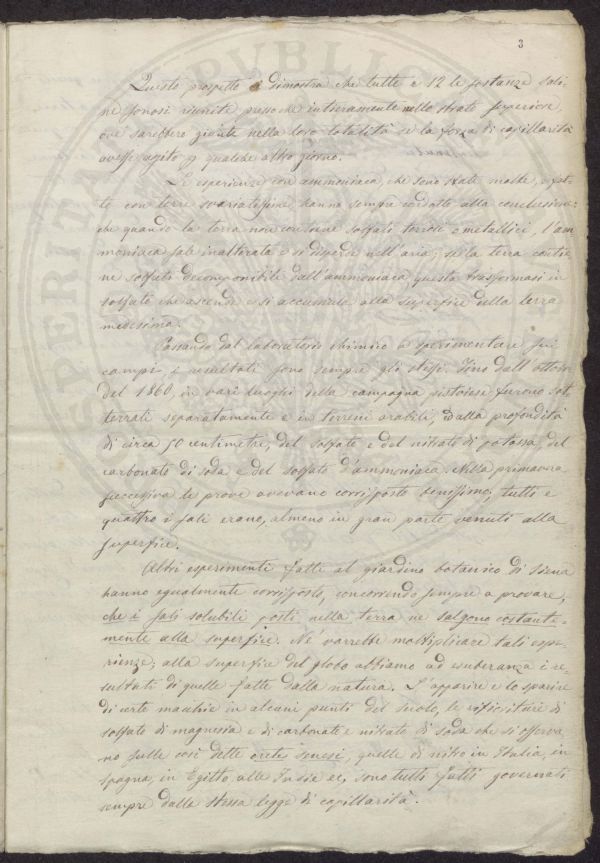 3
Questo prospetto dimostra che tutte e 12 le sostanze sali-
ne sonosi riunite pressochè intieramente nello strato superiore,
ove sarebbero giunte nella loro totalità se la forza di capillarità
avesse agito p qualche altro giorno.
Le esperienze con ammoniaca, che sono state molte, e fat-
te con terre svariatissime hanno sempre condotto alla conclusione
che quando la terra non contiene solfati terrosi o metallici, l'am
moniaca sale inalterata e si disperde nell'aria, se la terra contie
ne solfato decomponibile dall'ammoniaca questa trasformasi in
solfato che ascende e si accumula alla superfice della terra
medesima.
Passando dal laboratorio chimico a sperimentare sui
campi i resultati sono sempre gli stessi. Fino dall'ottobre
del 1860, in varj luoghi della campagna pistoiese furono sot
terrati separatamente e in terreni arabili, alla profondità
di circa 50 centimetri, del solfato e del nitrato di potassa, del
carbonato di soda e del solfato d'ammoniaca. Nella primavera
successiva le prove avevano corrisposto benissimo, tutti e
quattro i sali erano, almeno in gran parte venuti alla
superfice.
Altri esperimenti fatti al giardino botanico di Siena
hanno egualmente corrisposto, concorrendo sempre a provare,
che i sali solubili posti nella terra ne salgono costante-
mente alla superfice. Nè varrebbe moltiplicare tali espe-
rienze, alla superfice del globo abbiamo ad esuberanza i re-
sultati di quelle fatte dalla natura. L'apparire e lo sparire
di certe macchie in alcuni punti del suolo, le rifioriture di
solfato di magnesia e di carbonato e nitrato di soda che si osserva
no sulle così dette crete senesi, quelle di nitro in Italia, in
Spagna, in Egitto alle Indie ec, sono tutti fatti governati
sempre dalla stessa legge di capillarità.